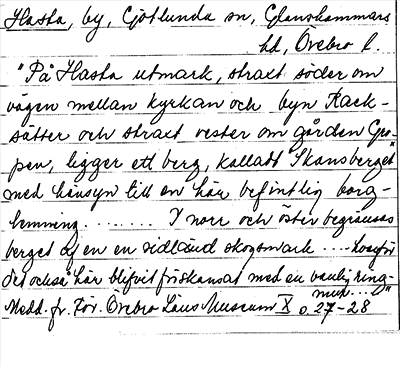 Hasta, by, Götlunda sn, Glanshammars
hd, Örebro l.
"På Hasta utmark, straxt söder om
vägen mellan kyrkan och byn Räck-
sätter och straxt vester om gården Gro-
pen, ligger ett berg, kalladt "Skansberget"
med hänsyn till en här befintlig borg-
lemning......... I norr och öster begränsas
berget af en en sidländ skogsmark ....hvarför
det också här blifvit förskansat med en vanlig ring-
mur...."
Medd. fr. För. Örebro Läns Museum X s. 27-28